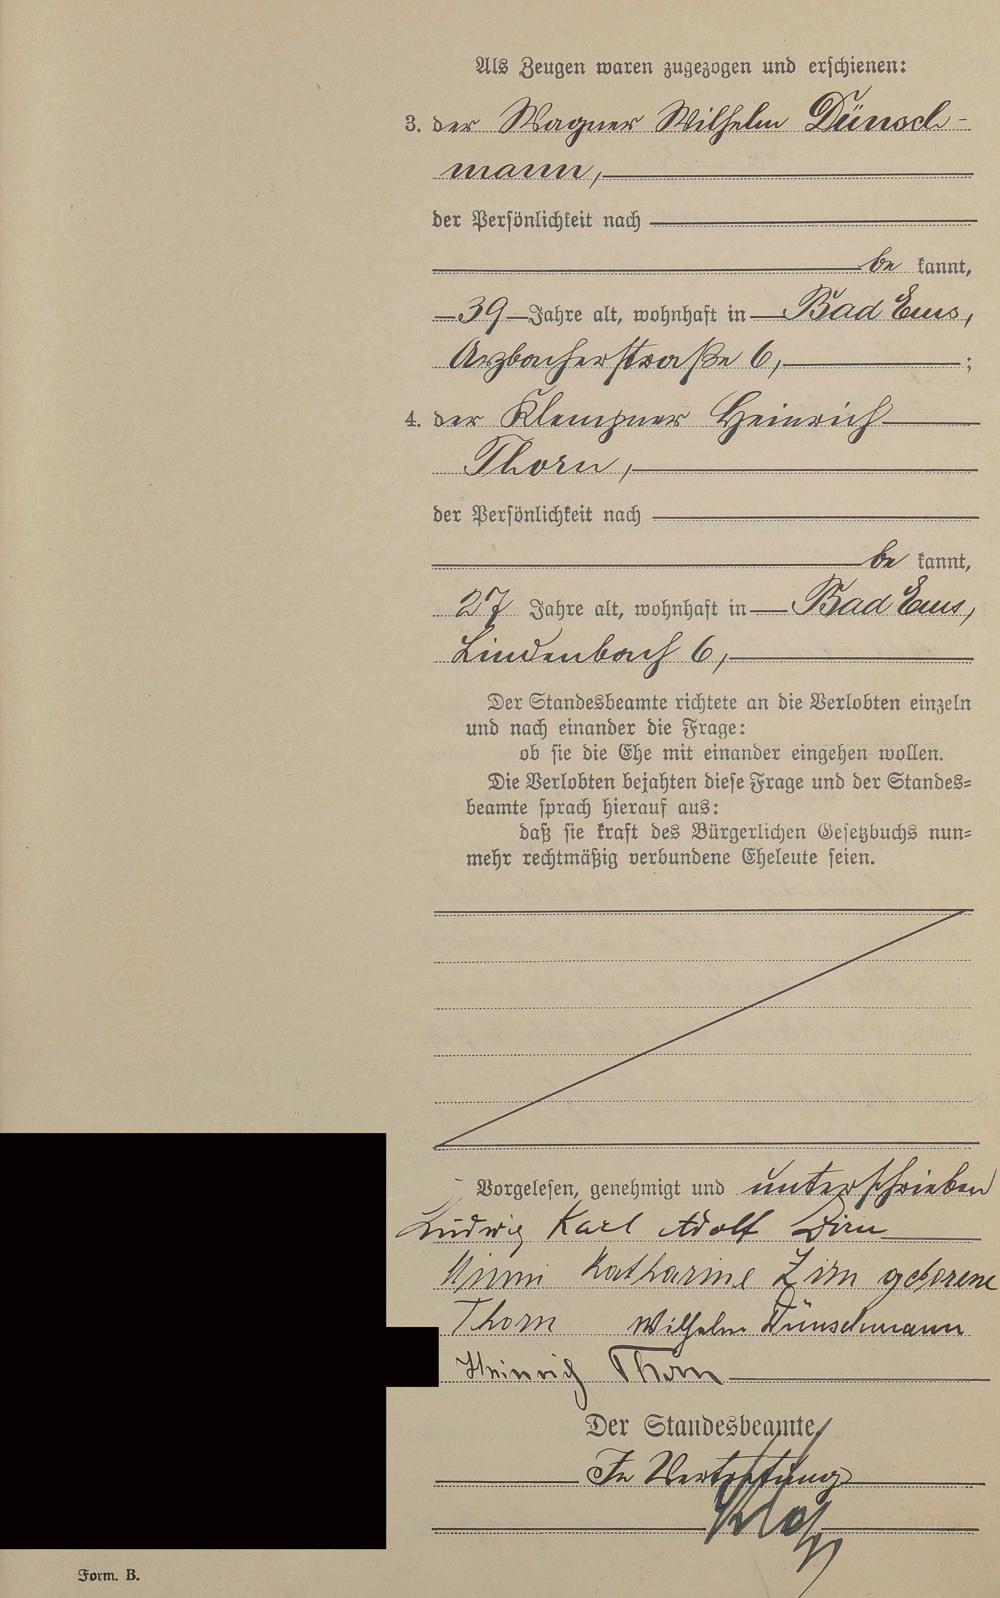 Als Zeugen waren zugezogen und erschienen:
3. der Wagner Wilhelm Dünsch-
mann,
der Persönlichkeit nach
be kannt,
39 Jahre alt, wohnhaft in Bad Ems,
Arzbacherstraße 6, ;
4. der Klempner Heinrich
Thorn,
der Persönlichkeit nach
be kannt,
27 Jahre alt, wohnhaft in Bad Ems,
Lindenbach 6,
Der Standesbeamte richtete an die Verlobten einzeln
und nach einander die Frage:
ob sie die Ehe mit einander eingehen wollen.
Die Verlobten bejahten diese Frage und der Standes-
beamte sprach hierauf aus:
daß sie kraft des Bürgerlichen Gesetzbuchs nun-
mehr rechtmäßig verbundene Eheleute seien.
Vorgelesen, genehmigt und unterschrieben
Ludwig Karl Adolf
Katharine geborene
Thorn Wilhelm Dünschmann
Heinrich Thorn
Der Standesbeamte
In Vertretung
Form. B.